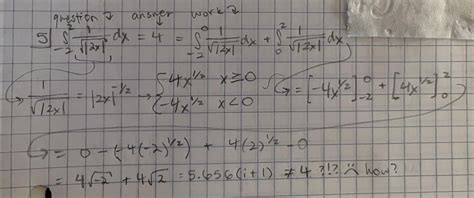 question↓ answer work↓
5] ∫_{-2}^{2} 1/√|2x| dx = 4 = ∫_{-2}^{0} 1/√|2x| dx + ∫_{0}^{2} 1/√|2x| dx
1/√|2x| = |2x|^{-1/2} → { 4x^{1/2} x≥0
{ -4x^{1/2} x<0
= [-4x^{1/2}]_{-2}^{0} + [4x^{1/2}]_{0}^{2}
= 0 - (-4(-2)^{1/2}) + 4(2)^{1/2} - 0
= 4√-2 + 4√2 = 5.656(i+1) ≠ 4 ?!? ☹ how?